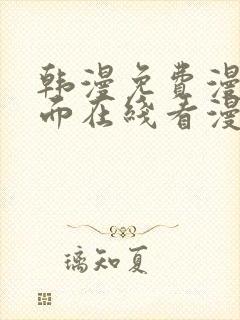 韩漫免费漫
而在线看漫
璃知夏